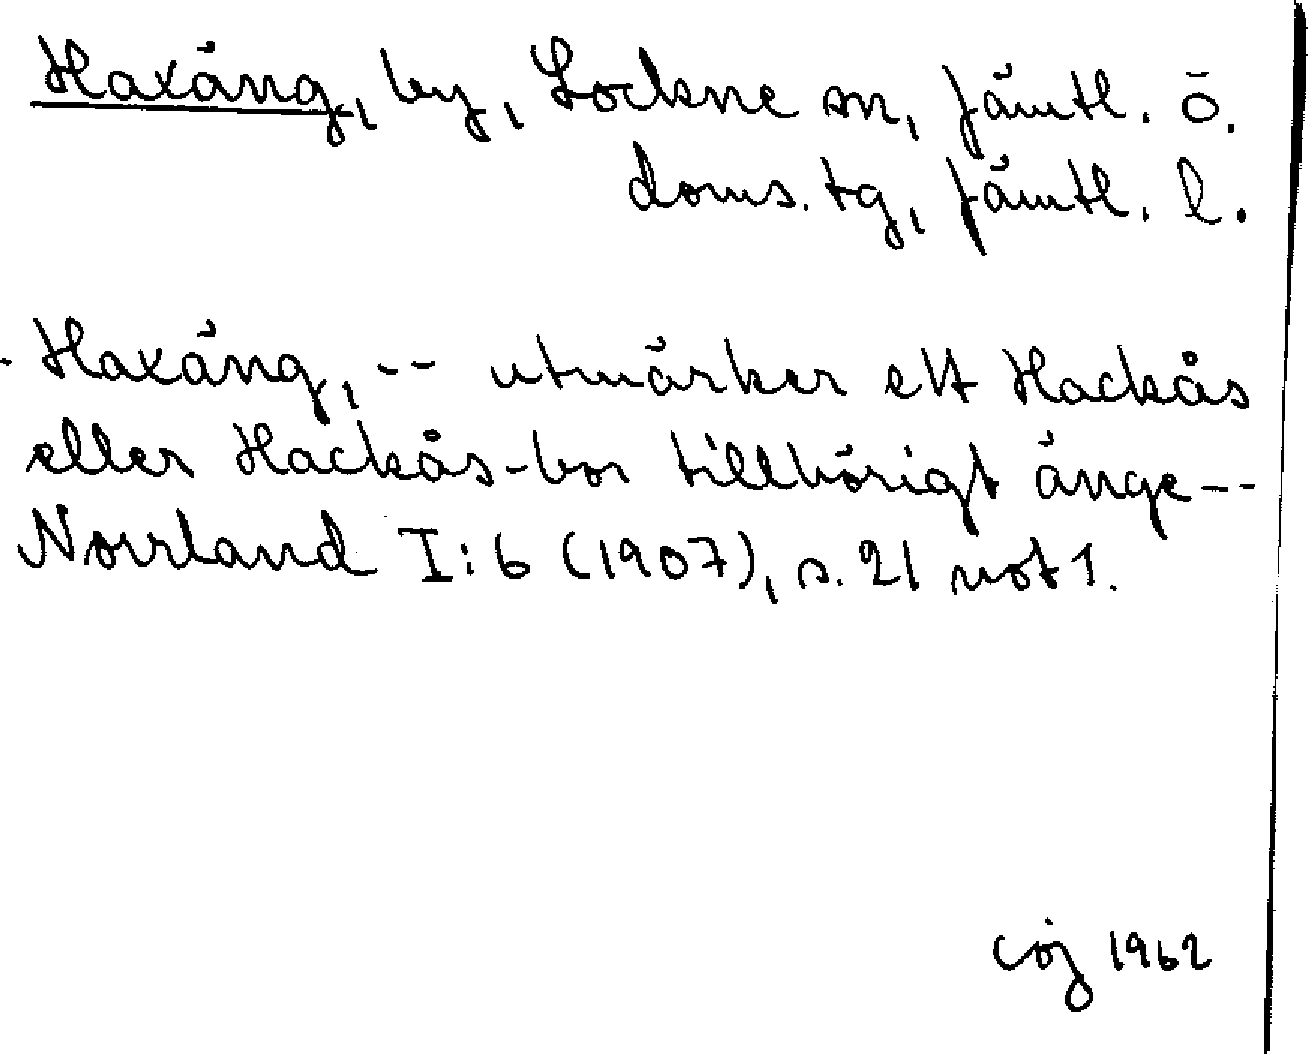 Haxäng, by, Lockne sn, Jämtl. ö.
doms. tg, Jämtl. l.
Haxäng, -- utmärker ett Hackås
eller Hackås-bor tillhörigt änge --
Norrland I:6 (1907), s. 21 not 1.
1962